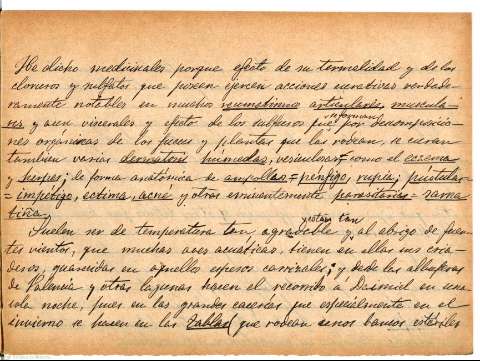 He dicho medicinales porque efecto de su termalidad y de los
cloruros y sulfatos que poseen ejercen acciones curativas verdade-
ramente notables en muchos reumatismos articulares, muscula-
res y aun viscerales y efecto de los sulfuros que se forman por descomposicio-
nes orgánicas de los peces y plantas que los rodean, se curan
tambien varias dermatosis humedas, vesiculosas = como el eczema
y herpes; de forma anatomica de ampollas = pénfigo, rupia; pustulas
= impétigo, ectima, acné y otras eminentemente parasitarias = sarna
tiña,
Suelen ser de temperatura tan agradable y estan tan al abrigo de fuer-
tes vientos, que muchas aves acuáticas, tienen en ellas sus cria-
deros, guarecidas en aquellos espesos carrizales; y desde las albuferas
de Valencia y otras lagunas hacen el recorrido a Daimiel en una
sola noche, pues en las grandes cacerías que especialmente en el
invierno se hacen en las tablas (que rodean unos bancos estériles